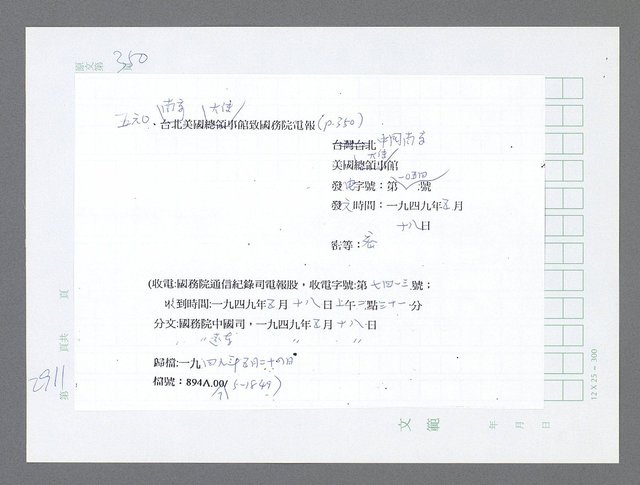 原文第 350 頁
南京 大使
五六0、台北美國總領事館致國務院電報(p.350)
台灣台北 中國南京
大使
美國總領事館
發電字號：第一0五四號
發文時間：一九四九年五月
十八日
密等：密
(收電:國務院通信紀錄司電報股，收電字號:第七四一三號；
收到時間:一九四九年五月十八日上午二點三十一分
分文:國務院中國司，一九四九年五月十八日
〃 〃 遠東 〃 〃
歸檔:一九四九年五月二十四日
檔號：894A.00/
(5-1849)
第 2911 頁共 頁
文 範
年 月 日
12 X 25 - 300